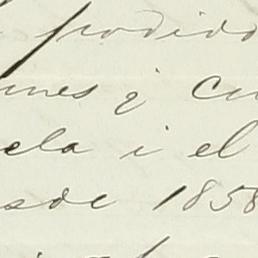 podido
unes q͛ Cu
ela i el
sde 1858